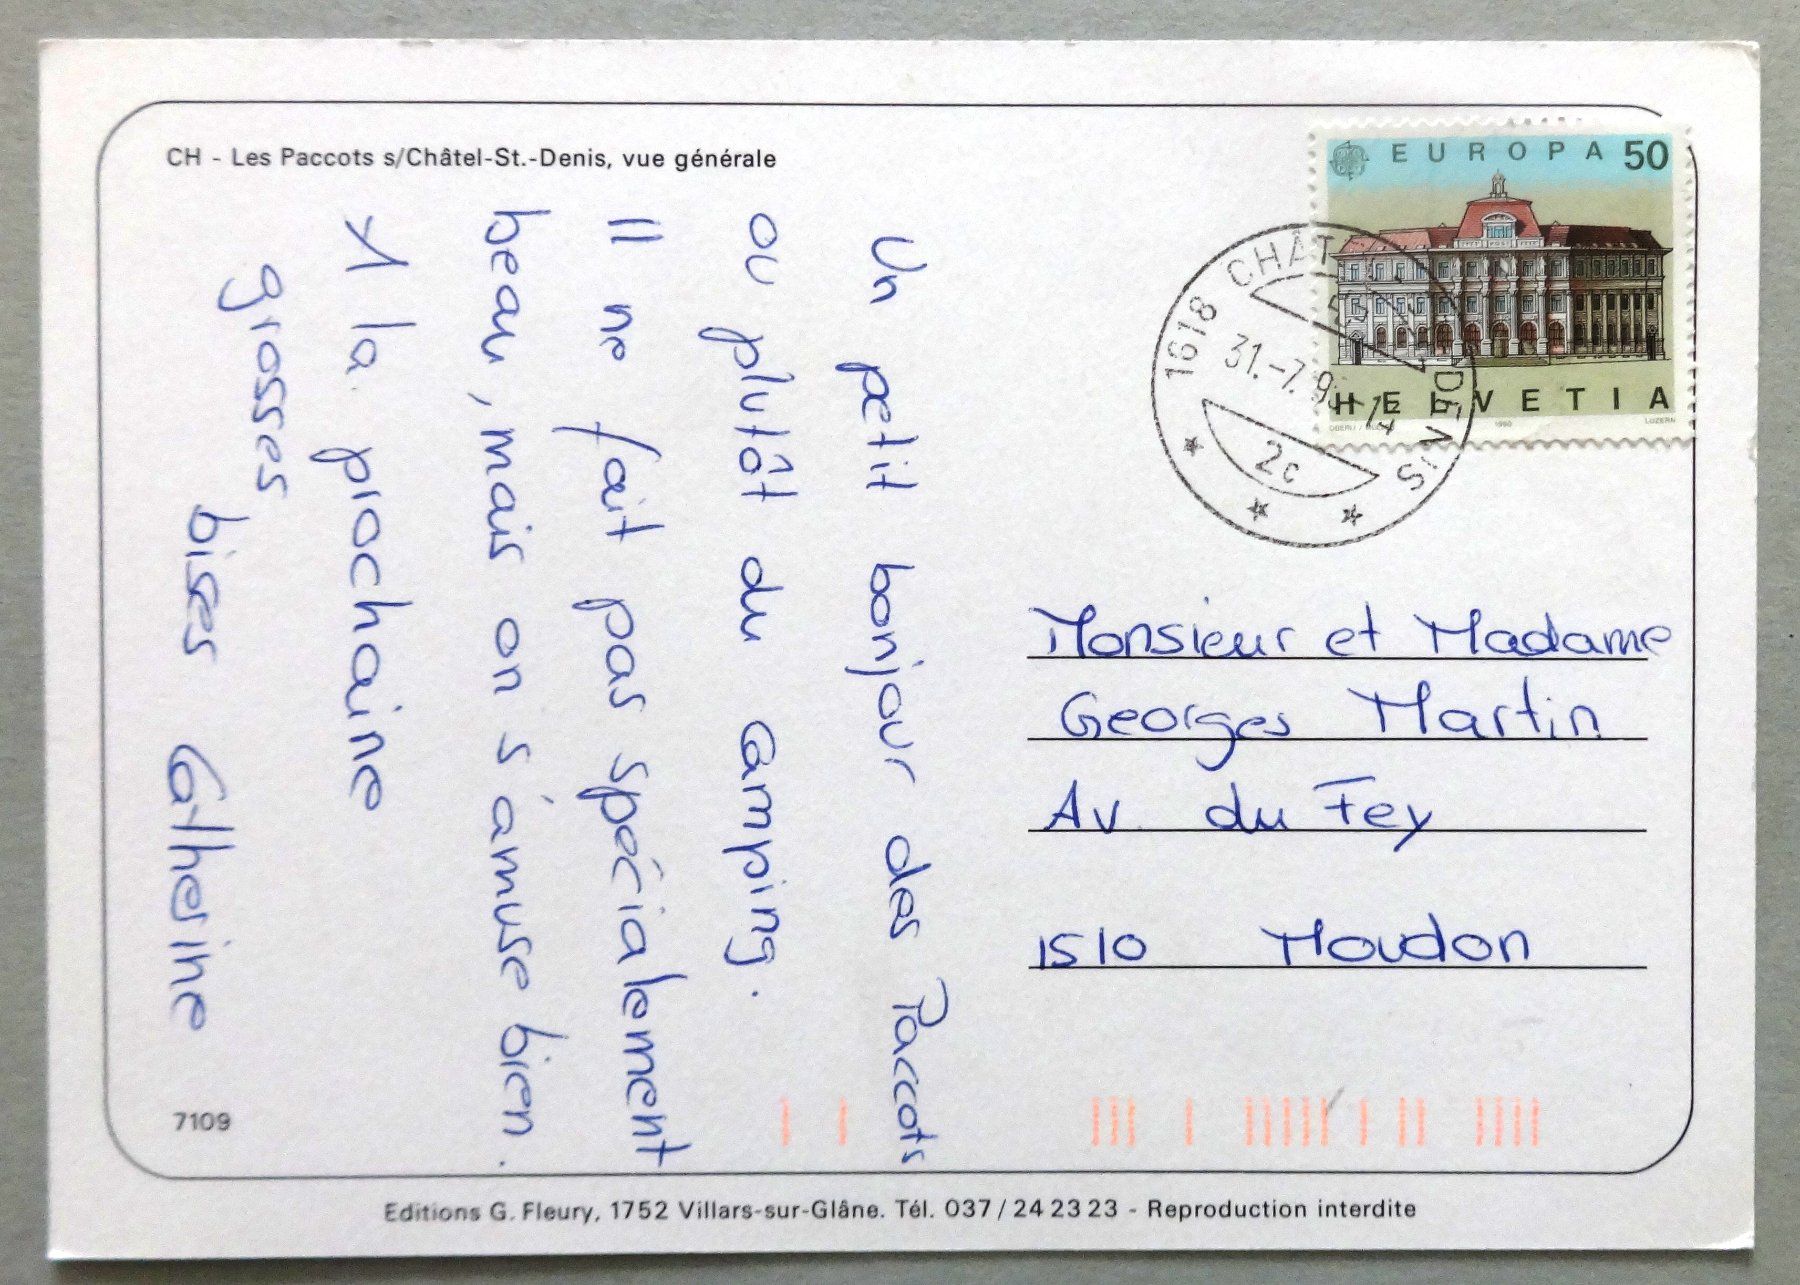 CH - Les Paccots s/Châtel-St.-Denis, vue générale
Un petit bonjour des Paccots
ou plutôt du camping.
Il ne fait pas spécialement
beau, mais on s'amuse bien.
A la prochaine
grosses
bises Catherine
EUROPA 50
HELVETIA
1990
LUZERN
1618 CHÂTEL-ST-DENIS
31.-7.9
2c
Monsieur et Madame
Georges Martin
Av. du Fey
1510 Moudon
7109
Editions G. Fleury, 1752 Villars-sur-Glâne. Tél. 037/24 23 23 - Reproduction interdite